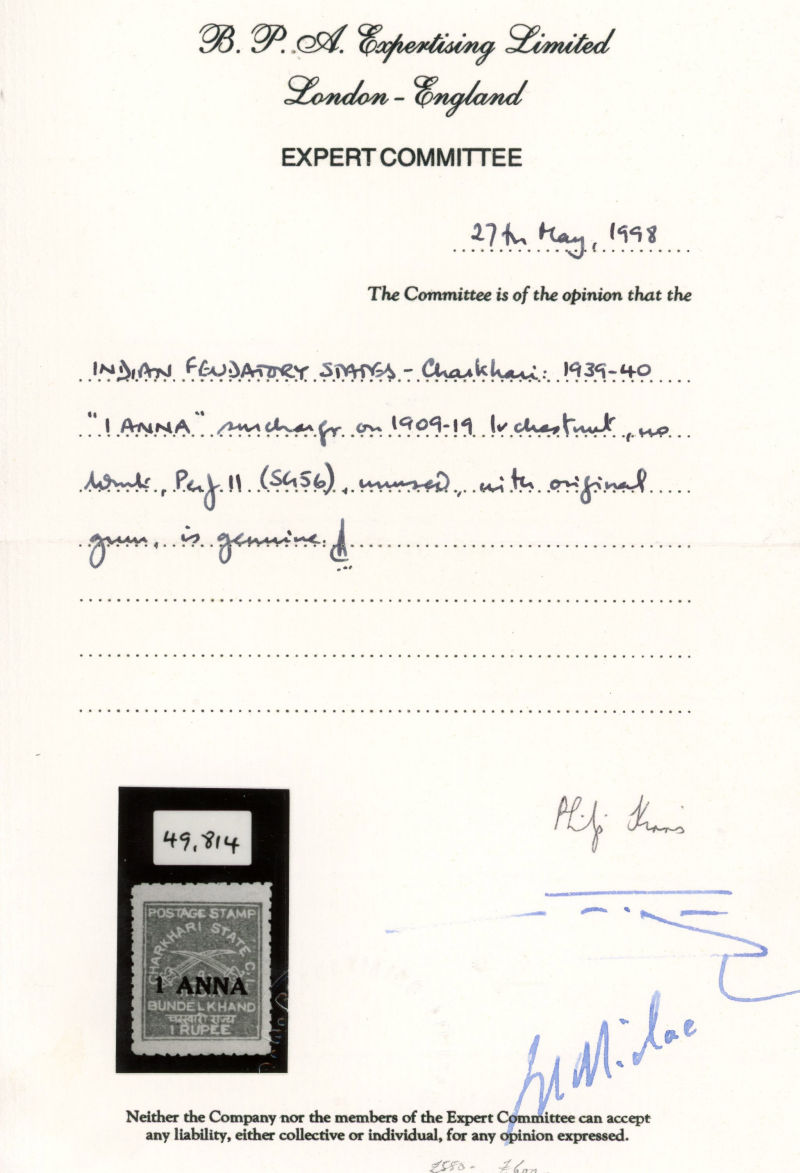 B. P. A. Expertising Limited
London - England
EXPERT COMMITTEE
27th May, 1998
The Committee is of the opinion that the
INDIAN FEUDATORY STATES - Charkhari: 1939-40
"1 ANNA" surcharge on 1909-19 1r chestnut, no
wmk, Perf 11 (SG56), unused, with original
gum, is genuine.
49,814
POSTAGE STAMP
CHARKHARI STATE C.I.
1 ANNA
BUNDELKHAND
चरखारी राज्य
1 RUPEE
Neither the Company nor the members of the Expert Committee can accept
any liability, either collective or individual, for any opinion expressed.